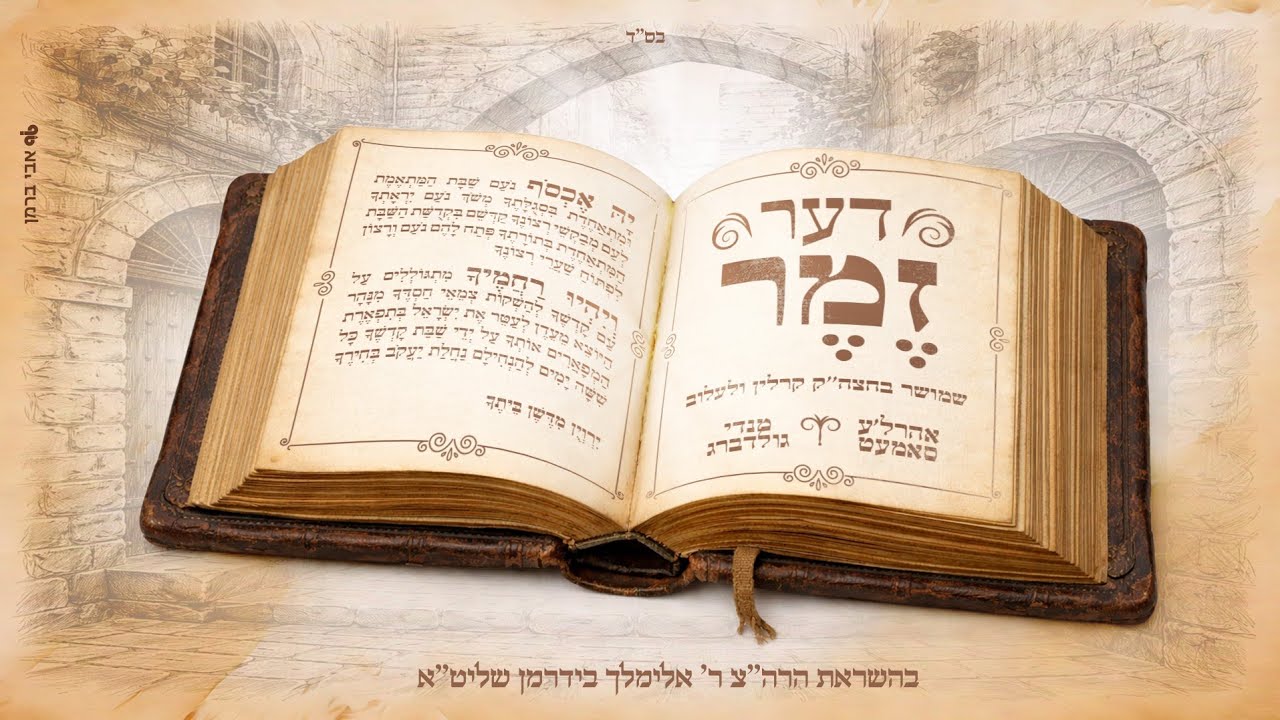 בס״ד
אבי ברמן
דער
זְמֶר
שמושר בחצה״ק קרלין ולעלוב
אהרל׳ע סאמעט
מנדי גולדברג
יָהּ אֶכְסֹף נֹעַם שַׁבָּת הַמַּתְאֶמֶת
וּמִתְאַחֶדֶת בִּסְגֻלָּתֶךָ מְשֹׁךְ נֹעַם יִרְאָתְךָ
לְעַם מְבַקְשֵׁי רְצוֹנֶךָ קַדְּשֵׁם בִּקְדֻשַּׁת הַשַּׁבָּת
הַמִּתְאַחֶדֶת בְּתוֹרָתֶךָ פְּתַח לָהֶם נֹעַם וְרָצוֹן
לִפְתּוֹחַ שַׁעֲרֵי רְצוֹנֶךָ
וְיִהְיוּ רַחֲמֶיךָ מִתְגּוֹלְלִים עַל
עַם קָדְשֶׁךָ לְהַשְׁקוֹת צְמֵאֵי חַסְדֶּךָ מִנָּהָר
הַיּוֹצֵא מֵעֵדֶן לְעַטֵּר אֶת יִשְׂרָאֵל בְּתִפְאֶרֶת
הַמְפָאֲרִים אוֹתְךָ עַל יְדֵי שַׁבַּת קָדְשֶׁךָ כָּל
שִׁשָּׁה יָמִים לְהַנְחִילָם נַחֲלַת יַעֲקֹב בְּחִירֶךָ
יִרְוְיֻן מִדֶּשֶׁן בֵּיתֶךָ
בהשראת הרה״צ ר׳ אלימלך בידרמן שליט״א